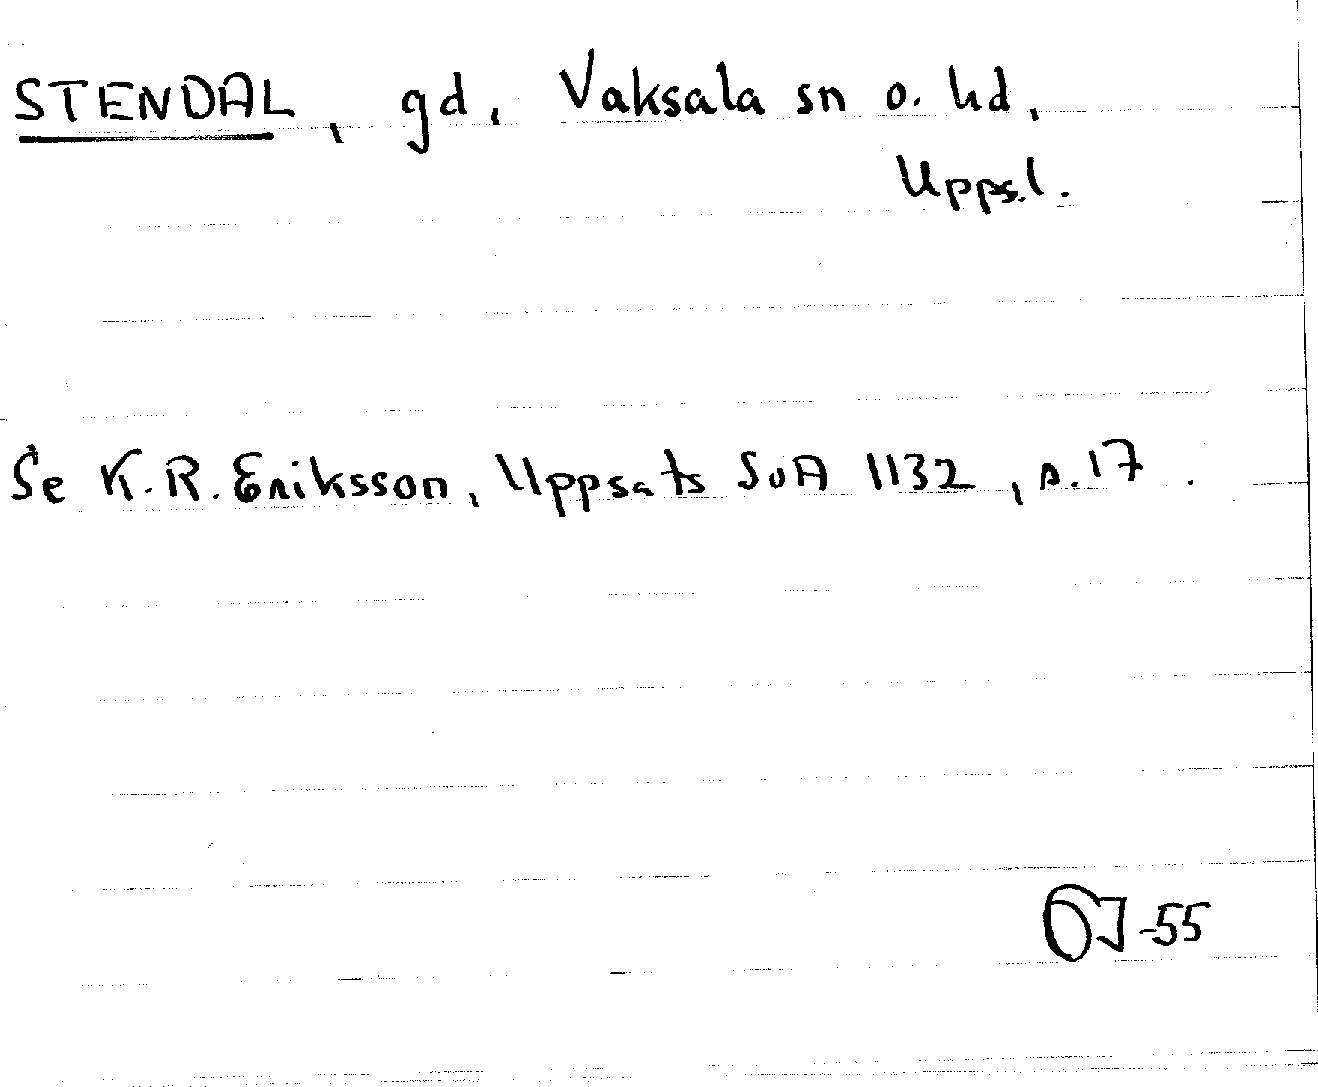 STENDAL, gd, Vaksala sn o. hd,
Uppsl.
Se K.R. Eriksson, Uppsats SOA 1132, s. 17.
OJ-55